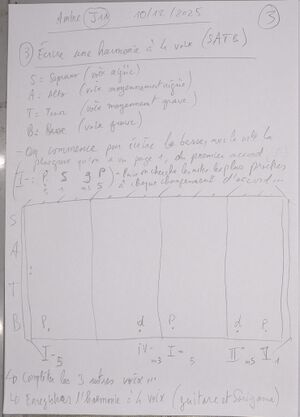 Ambre JIN 10/12/2025 3
3) Écrire une harmonie à 4 voix (SATB)
S = Soprano (voix aigüe)
A = Alto (voix moyennement aigüe)
T = Tenor (voix moyennement grave)
B = Basse (voix grave)
- On commence par écrire la basse, avec la note la
plus grave qu'on a vu page 1, du premier accord
I- : P S g P - Puis on cherche les notes les plus proches
1 m3 5 à chaque changement d'accord...
S
A
T
B P. d. P. d. P.
I-5 iv-m3 I-5 II-m5 V1
↳ Compléter les 3 autres voix...
↳ Enregistrer l'harmonie à 4 voix (guitare et